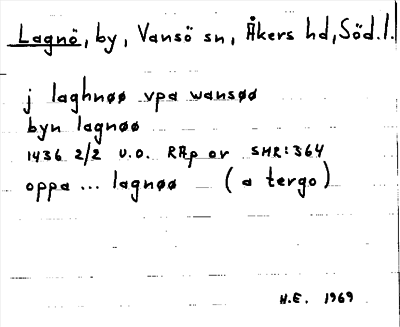 Lagnö, by, Vansö sn, Åkers hd, Söd.l.
j laghnøø vpa wansøø
byn lagnøø
1436 2/2 U.O. RAp or SMR:364
oppa ... lagnøø (a tergo)
H.E. 1969